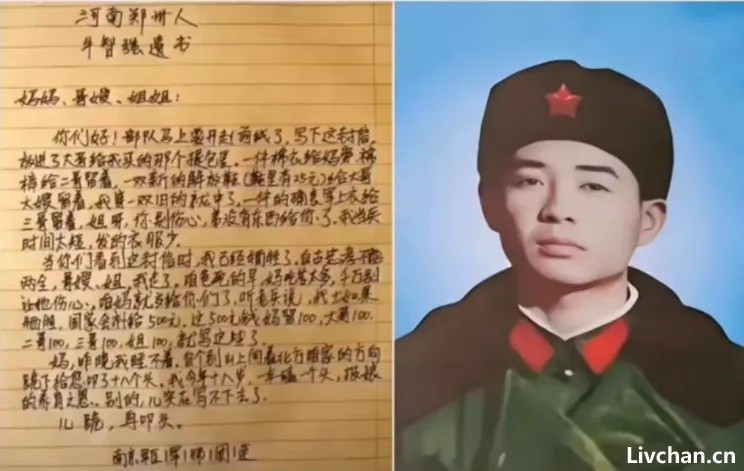 河南郑州人
牛智强遗书
妈妈、哥嫂、姐姐：
你们好！部队马上要开赴前线了，写下这封信，
放进了大哥给我买的那个提包里。一件棉衣给妈穿，棉
裤给二哥留着，一双新的解放鞋（鞋里有25元）给大哥
大嫂留着，我穿一双旧的就中了，一件的确良军上衣给
三哥留着，姐呀，你别伤心，弟没有东西给你了，我当兵
时间太短，发的衣服少。
当你们看到这封信时，我已经牺牲了。自古忠孝不能
两全，哥嫂、姐，我走了，咱爸死的早，妈吃苦太多，千万别
让她伤心，咱妈就交给你们了。听老乐说，战士如果
牺牲，国家会补给500元，这500元钱妈留100，大哥100，
二哥100，三哥100，姐100，就写这些了。
妈，昨晚我睡不着，在个别山上向着北方咱家的方向
跪下给您叩了十八个头。我今年十八岁，一年磕一个头，报娘
的养育之恩。别的，儿实在写不下去了。
儿跪，再叩头。
Livchan.cn